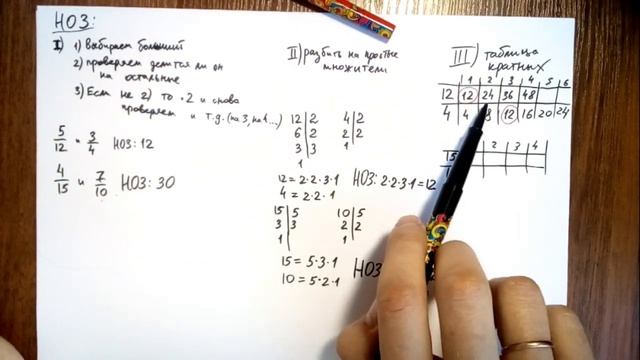 НОЗ:
I) 1) выбираем больший
2) проверяем делится ли он
на остальные
3) Если не 2) то ·2 и снова
проверяем и т.д. (на 3, на 4...)
5/12 и 3/4 НОЗ: 12
4/15 и 7/10 НОЗ: 30
II) разбить на простые
множители
12|2 4|2
6|2 2|2
3|3 1
1
12 = 2·2·3·1 НОЗ: 2·2·3·1=12
4 = 2·2·1
15|5 10|5
3|3 2|2
1 1
15 = 5·3·1 НОЗ
10 = 5·2·1
III) таблица
кратных
1 2 3 4 5 6
12 12 24 36 48
4 4 8 12 16 20 24
15 2 3 4